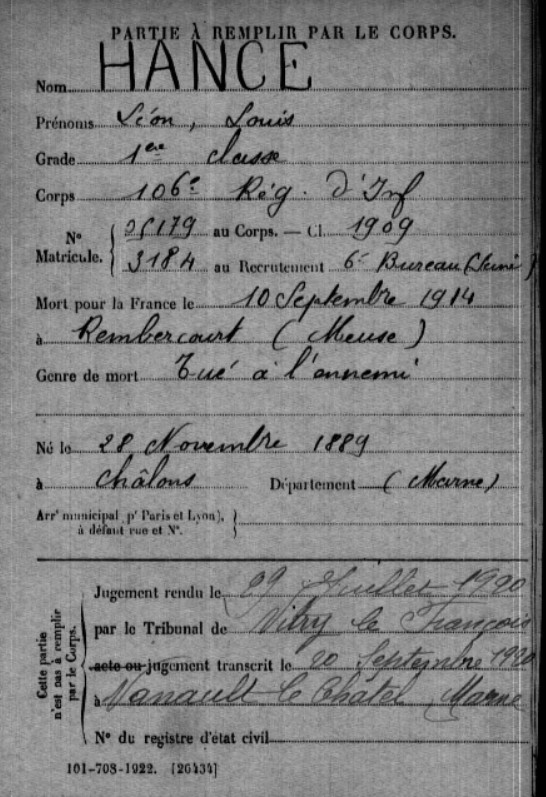 PARTIE À REMPLIR PAR LE CORPS.
Nom HANCE
Prénoms Léon, Louis
Grade 1ère classe
Corps 106e Rég. d'Inf
N° Matricule. 05179 au Corps. — Cl. 1909
3184 au Recrutement 6e Bureau (Seine)
Mort pour la France le 10 Septembre 1914
à Rembercourt (Meuse)
Genre de mort Tué à l'ennemi
Né le 28 Novembre 1889
à Châlons Département (Marne)
Arrt municipal pr Paris et Lyon),
à défaut rue et N°.
Jugement rendu le 29 Juillet 1920
par le Tribunal de Vitry le François
acte ou jugement transcrit le 20 Septembre 1920
à Vanault le Châtel Marne
N° du registre d'état civil
Cette partie
n'est pas à remplir
par le Corps.
101-708-1922. [26434]